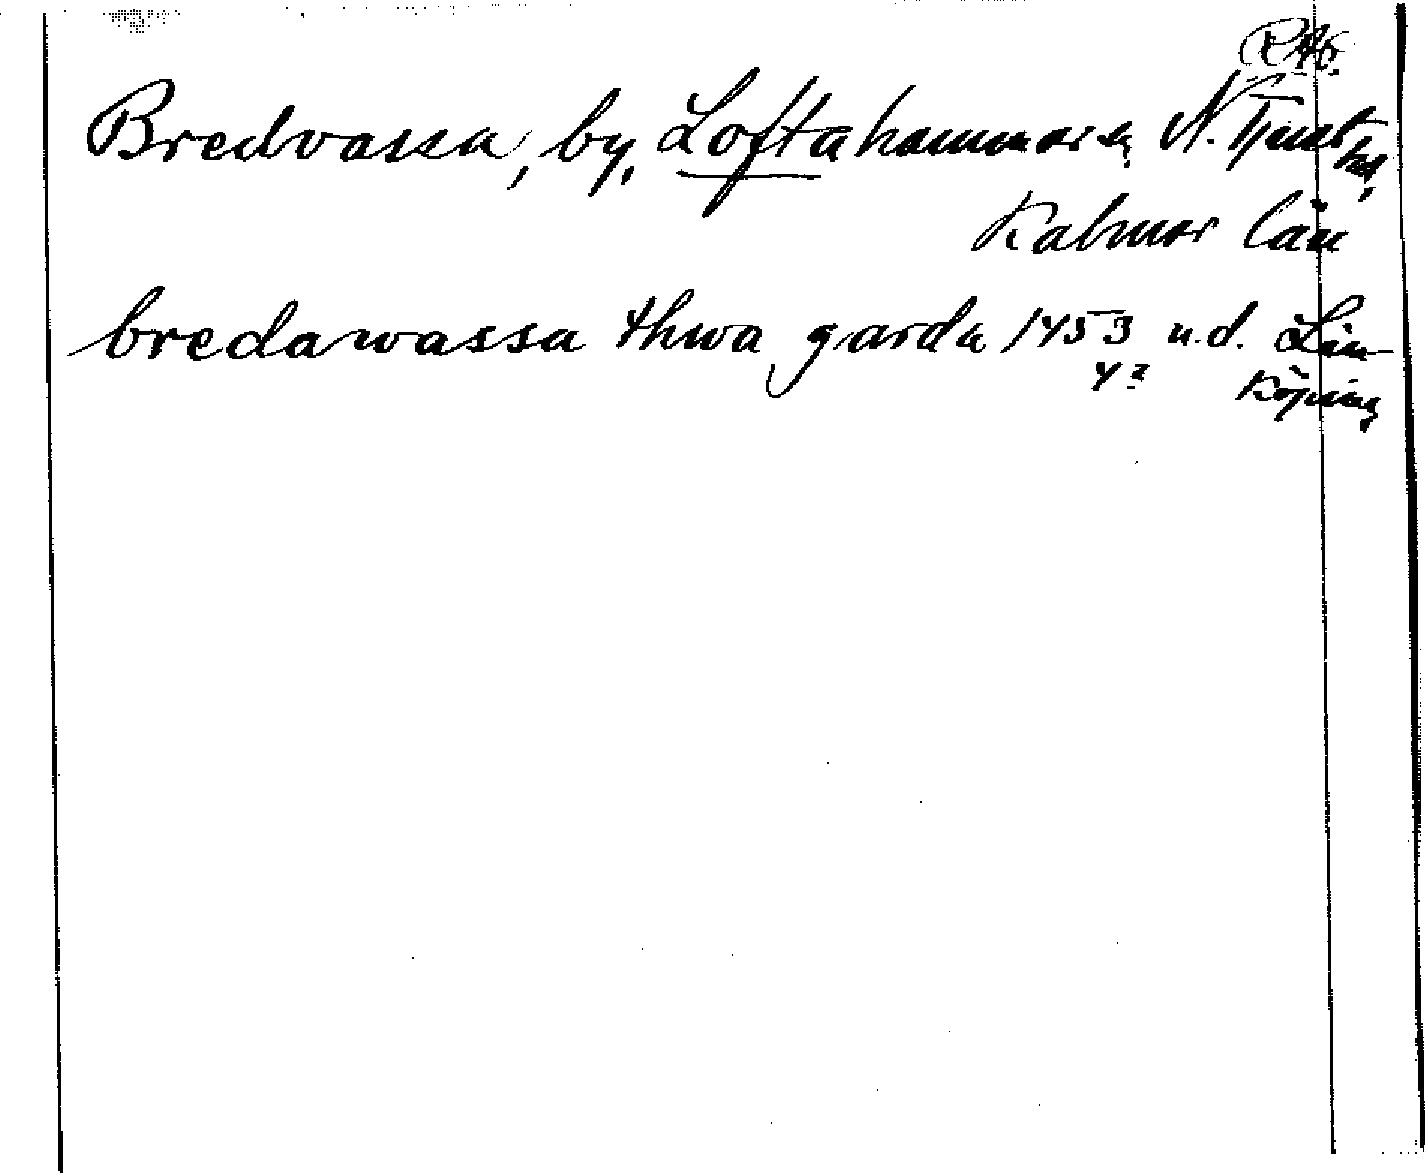 RAp.
Bredvassa, by, Loftahammar sn, N. Tjust hd,
Kalmar län
bredawassa thwa garda 1453 u.d. Lin-
köping